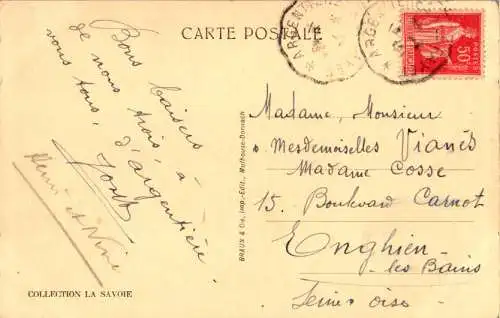 CARTE POSTALE
ARGENTIERE
ARGENTIERE
50c
POSTES
Bons baisers
de nous trois, à
vous tous, d'argentière.
Henri et Nine
COLLECTION LA SAVOIE
BRAUN & Cie, Imp.-Edit., Mulhouse-Dornach
Madame, Monsieur
Mesdemoiselles Vianès
Madame Cosse
15. Boulevard Carnot
Enghien
les Bains
Seine Oise